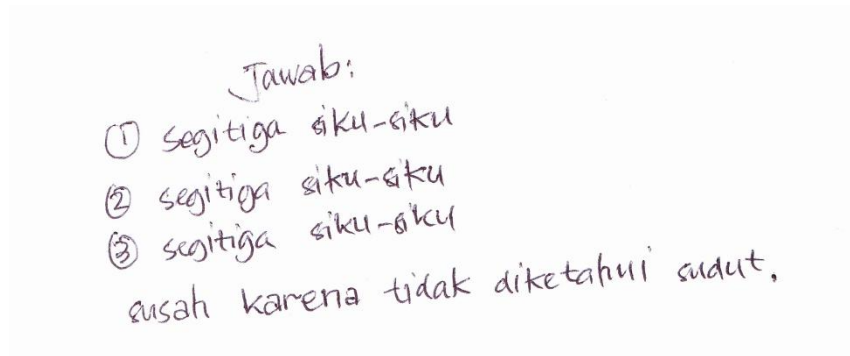 Jawab:
① segitiga siku-siku
② segitiga siku-siku
③ segitiga siku-siku
susah karena tidak diketahui sudut.